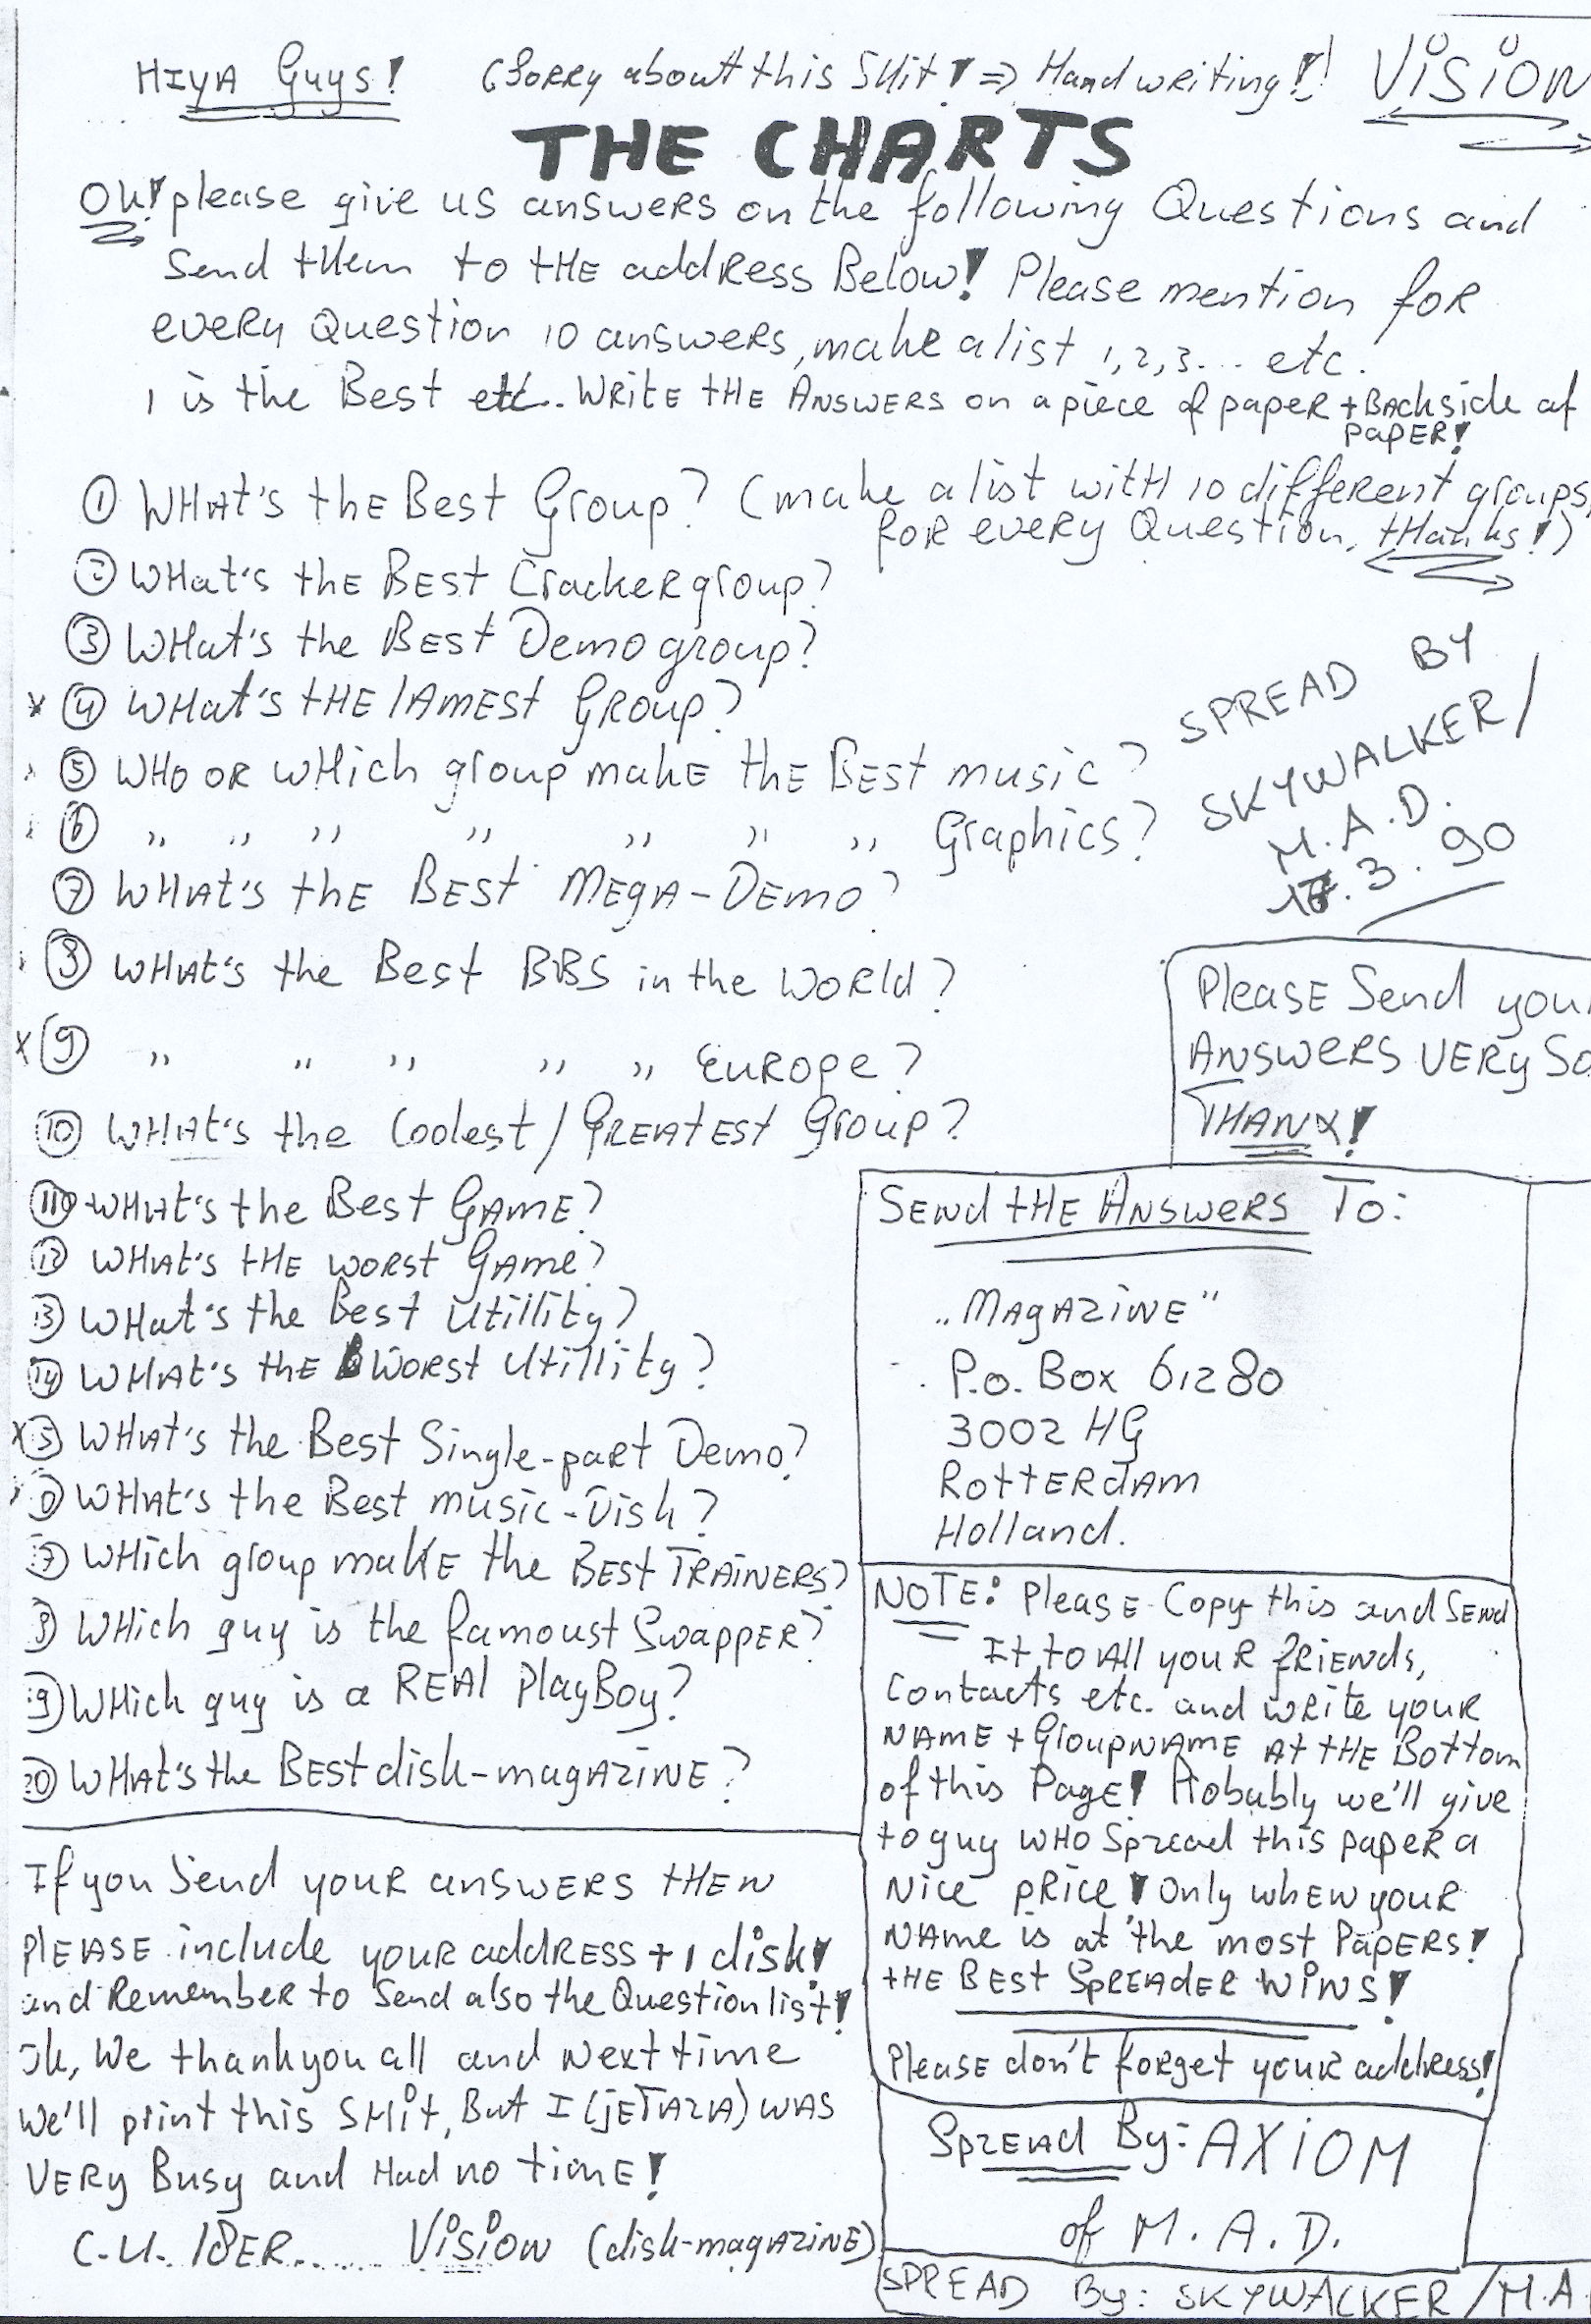 HIYA Guys! (Sorry about this SHit! => Handwriting!! ViSiON
THE CHARTS
Ok! please give us answers on the following Questions and
Send them to tHE address Below! Please mention for
every Question 10 answers, make a list 1,2,3... etc.
1 is the Best etc. Write the Answers on a piece of paper + Backside of
paper!
① WHAt's the Best Group? (make a list with 10 different groups,
for every Question, tHanks!)
② WHat's the BEst Crackergroup?
③ WHat's the BEst Demogroup?
x ④ WHat's tHE lAMEST Group?
⑤ WHO OR WHich group make the Best music?
⑥ ,, ,, ,, ,, ,, ,, ,, Graphics?
⑦ WHAt's the BEST MEgA-DEmo?
⑧ WHAt's the Best BBS in the World?
x ⑨ ,, ,, ,, ,, ,, Europe?
⑩ WHAt's the Coolest/GREATEST Group?
⑪ WHAt's the Best GAME?
⑫ WHAt's tHE worst GAme?
⑬ WHat's the Best Utillity?
⑭ WHAt's the Worst Utillity?
x 15 WHAt's the Best Single-part Demo?
16 WHAt's the Best music-Disk?
17 WHich group make the BEst TRAiNERS?
18 WHich guy is the famoust Swapper?
19 WHich guy is a REAl PlayBoy?
20 WHAt's the BEst disk-magAziNE?
SPREAD BY
SKYWALKER/
M.A.D.
.3.90
PleasE Send your
ANSWERS VERY So
THANX!
SENd tHE ANSWERS To:
,,MAgAZiNE"
P.O. Box 61280
3002 HG
RottERdAM
Holland.
NOTE: PleasE Copy this and SENd
It to All your fRiENds,
Contacts etc. and write your
NAME + GroupNAME At tHE Bottom
of this PagE! Probably we'll give
to guy WHO Spread this paper a
Nice pRice! Only wHEN your
NAme is at the most PapERS!
tHE BEst SpREAdER WiNS!
PleasE don't forget your address!
SpREAd By: AXiOM
of M.A.D.
SPREAD By: SKYWALKER/M.A.
If you Send your answERS tHEN
PlEASE include your address + 1 disk!
and Remember to Send also the Question list!
Ok, We thank you all and Next time
We'll print this SHit, But I (jETAZIA) WAS
VERY Busy and Had no timE!
C.U. l8ER...... ViSioN (disk-magAziNE)